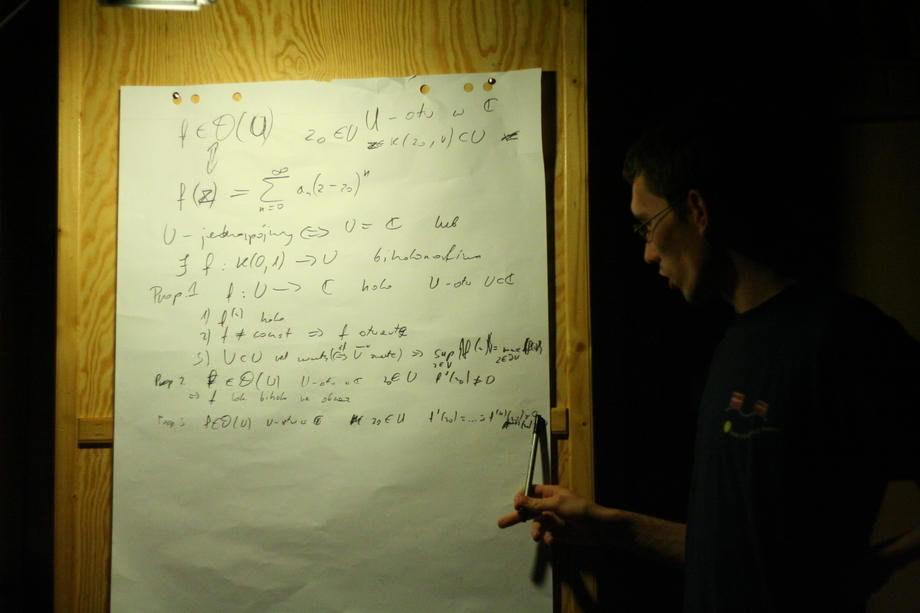 f ∈ O(U) z₀ ∈ U U - otw w ℂ
K(z₀, r) ⊂ U
⇕
f(z) = ∑_{n=0}^{∞} aₙ(z - z₀)ⁿ
U - jednospójny ⟺ U = ℂ lub
∃ f : K(0,1) → U biholomorfizm
Prop. 1 f : U → ℂ holo U - otw U ⊂ ℂ
1) holo
2) f ≠ const ⇒ f otwarte
3) U ⊂ U ⇒ sup
Prop 2 f ∈ O(U) U - otw w ℂ z₀ ∈ U f'(z₀) ≠ 0
⇒ f lok biholo
Prop 3 f ∈ O(U) U - otw w ℂ z₀ ∈ U f'(z₀) = ... =